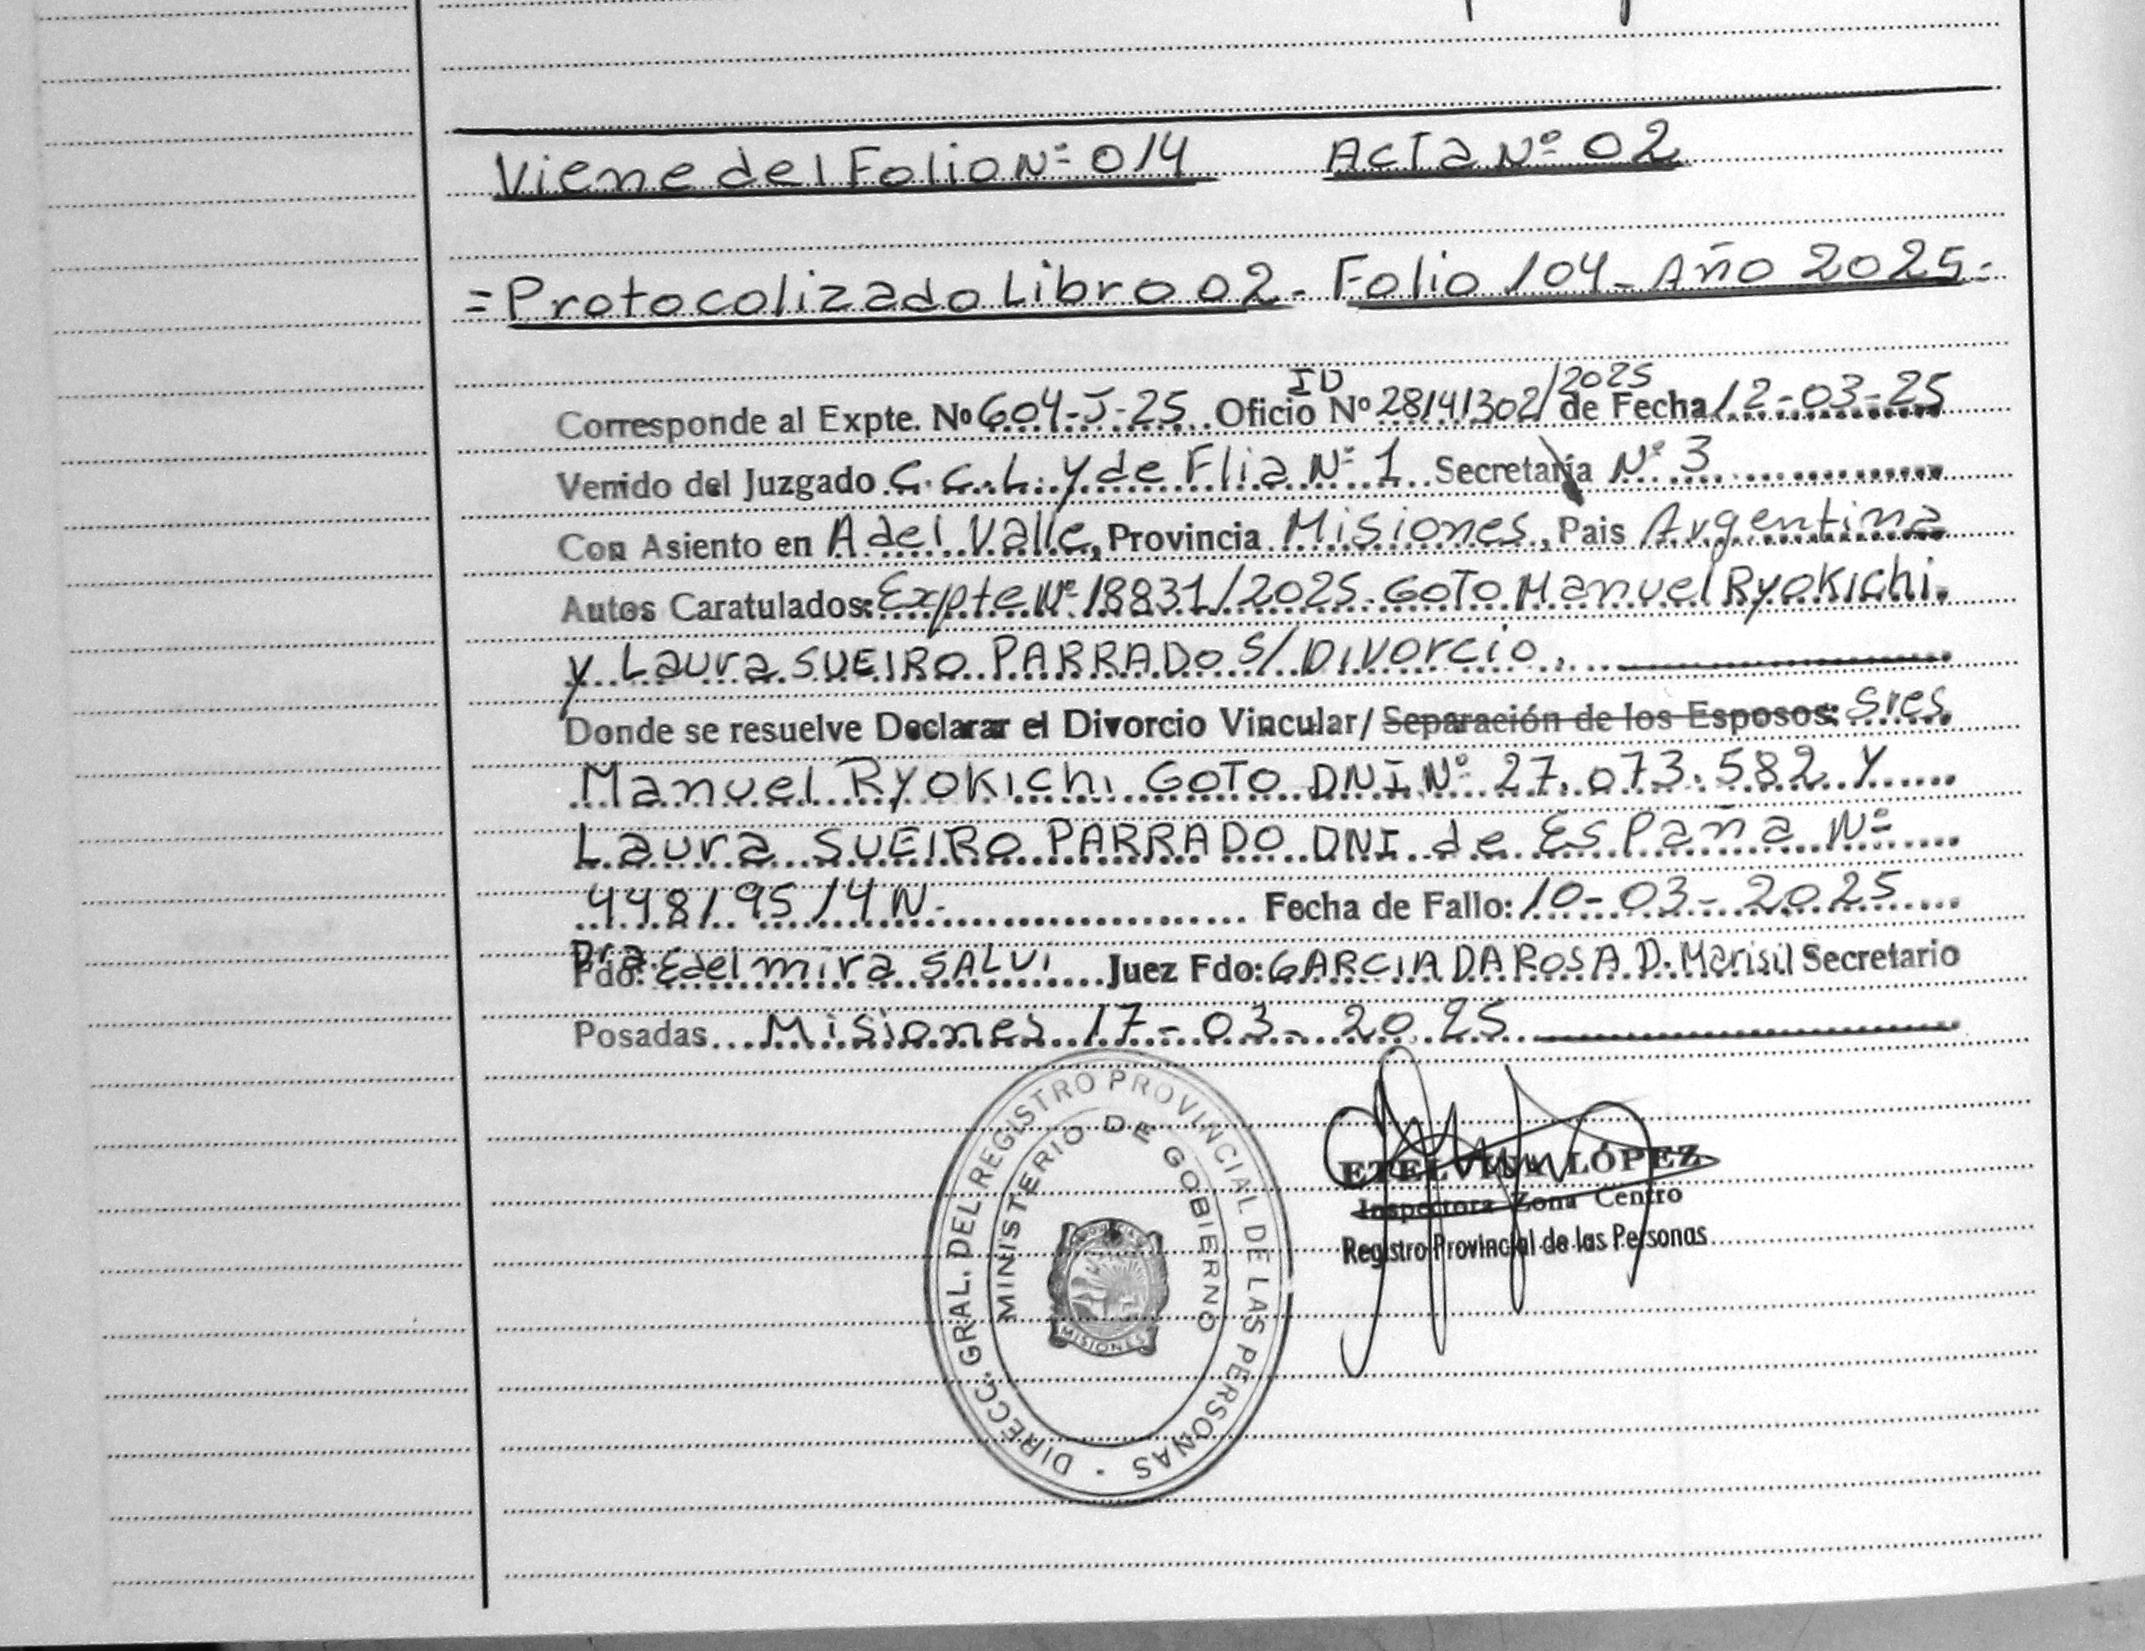 Viene del Folio Nº 014 Acta Nº 02
= Protocolizado Libro 02 - Folio 104 - Año 2025 -
Corresponde al Expte. Nº 604-J-25 Oficio ID Nº 28141302/2025 de Fecha 12-03-25
Venido del Juzgado C.C.L. y de Flia Nº 1 Secretaría Nº 3
Con Asiento en A del Valle, Provincia Misiones, Pais Argentina
Autos Caratulados: Expte Nº 18831/2025 GOTO Manuel Ryokichi.
y Laura SUEIRO PARRADO S/ Divorcio.
Donde se resuelve Declarar el Divorcio Vincular/ Separación de los Esposos: Sres
Manuel Ryokichi GOTO DNI Nº 27.073.582 Y
Laura SUEIRO PARRADO DNI de España Nº
44819514N. Fecha de Fallo: 10-03-2025
Fdo: Dra. Edelmira SALVI Juez Fdo: GARCIA DA ROSA D. Marisil Secretario
Posadas Misiones 17-03-2025
DIRECC. GRAL. DEL REGISTRO PROVINCIAL DE LAS PERSONAS
MINISTERIO DE GOBIERNO
MISIONES
ETELVINA LÓPEZ
Inspectora Zona Centro
Registro Provincial de las Personas